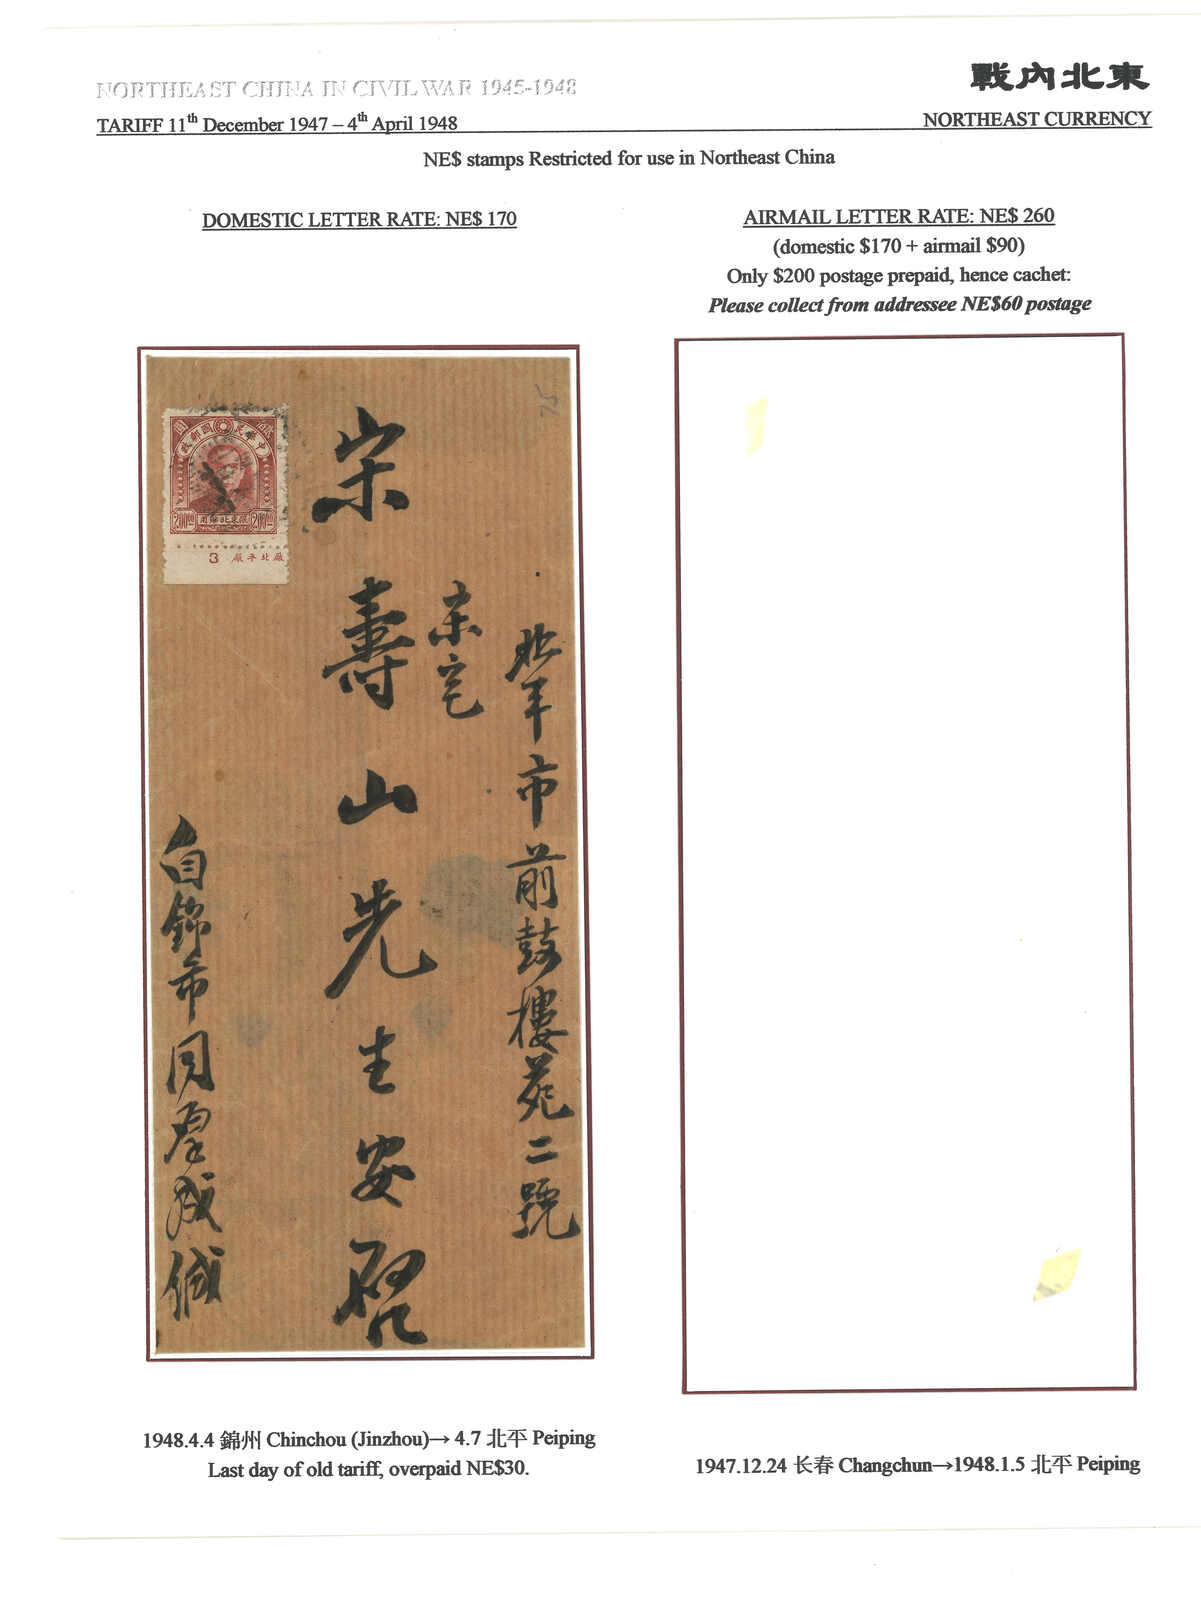 NORTHEAST CHINA IN CIVIL WAR 1945-1948
戰內北東
TARIFF 11th December 1947 – 4th April 1948
NORTHEAST CURRENCY
NE$ stamps Restricted for use in Northeast China
DOMESTIC LETTER RATE: NE$ 170
AIRMAIL LETTER RATE: NE$ 260
(domestic $170 + airmail $90)
Only $200 postage prepaid, hence cachet:
Please collect from addressee NE$60 postage
政郵國民華中
200 200
3 廠平北
北平市前鼓樓苑二號
宋宅
宋壽山先生安啓
自錦市同羣成緘
1948.4.4 錦州 Chinchou (Jinzhou)→ 4.7 北平 Peiping
Last day of old tariff, overpaid NE$30.
1947.12.24 长春 Changchun→1948.1.5 北平 Peiping